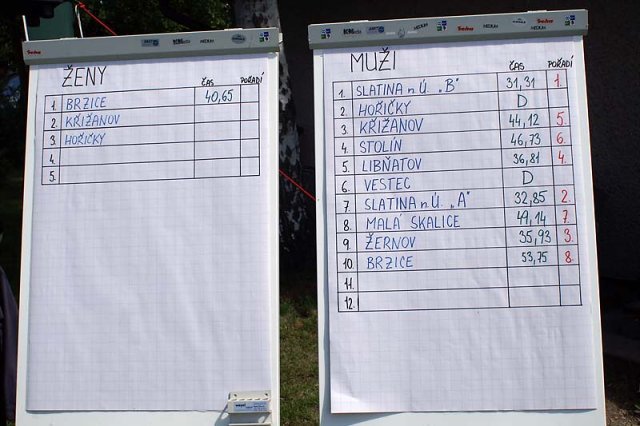 ŽENY
ČAS POŘADÍ
1. BRZICE 40,65
2. KŘIŽANOV
3. HOŘIČKY
4.
5.
MUŽI
ČAS POŘADÍ
1. SLATINA n.Ú. „B" 31,31 1.
2. HOŘIČKY D
3. KŘIŽANOV 44,12 5.
4. STOLÍN 46,73 6.
5. LIBŇATOV 36,81 4.
6. VESTEC D
7. SLATINA n.Ú. „A" 32,85 2.
8. MALÁ SKALICE 49,14 7.
9. ŽERNOV 35,93 3.
10. BRZICE 53,75 8.
11.
12.